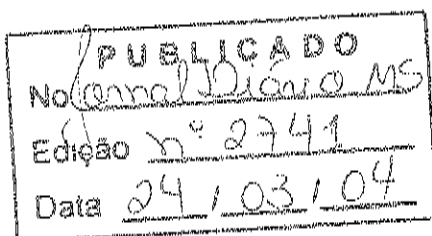 PUBLICADO
No Jornal Diário MS
Edição nº 2741
Data 24 / 03 / 04